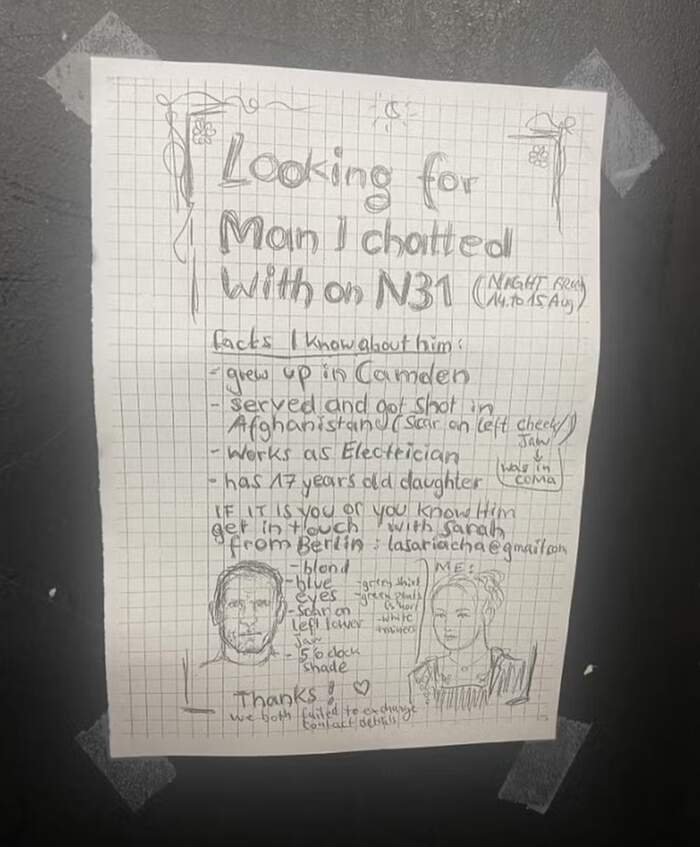 Looking for
Man I chatted
with on N31 (NIGHT FROM
14. to 15 Aug)
facts I know about him:
- grew up in Camden
- served and got shot in
Afghanistan (scar on left cheek/
Jaw)
- Works as Electrician
was in
COMA
- has 17 years old daughter
IF IT IS you or you know Him
get in touch with Sarah
from Berlin: lasariacha@gmail.com
- blond
- blue
eyes
- Scar on
left lower
Jaw
- 5 o'clock
shade
- green shirt
- green pants
(short)
- white
ME:
Thanks! ♡
we both failed to exchange
contact details